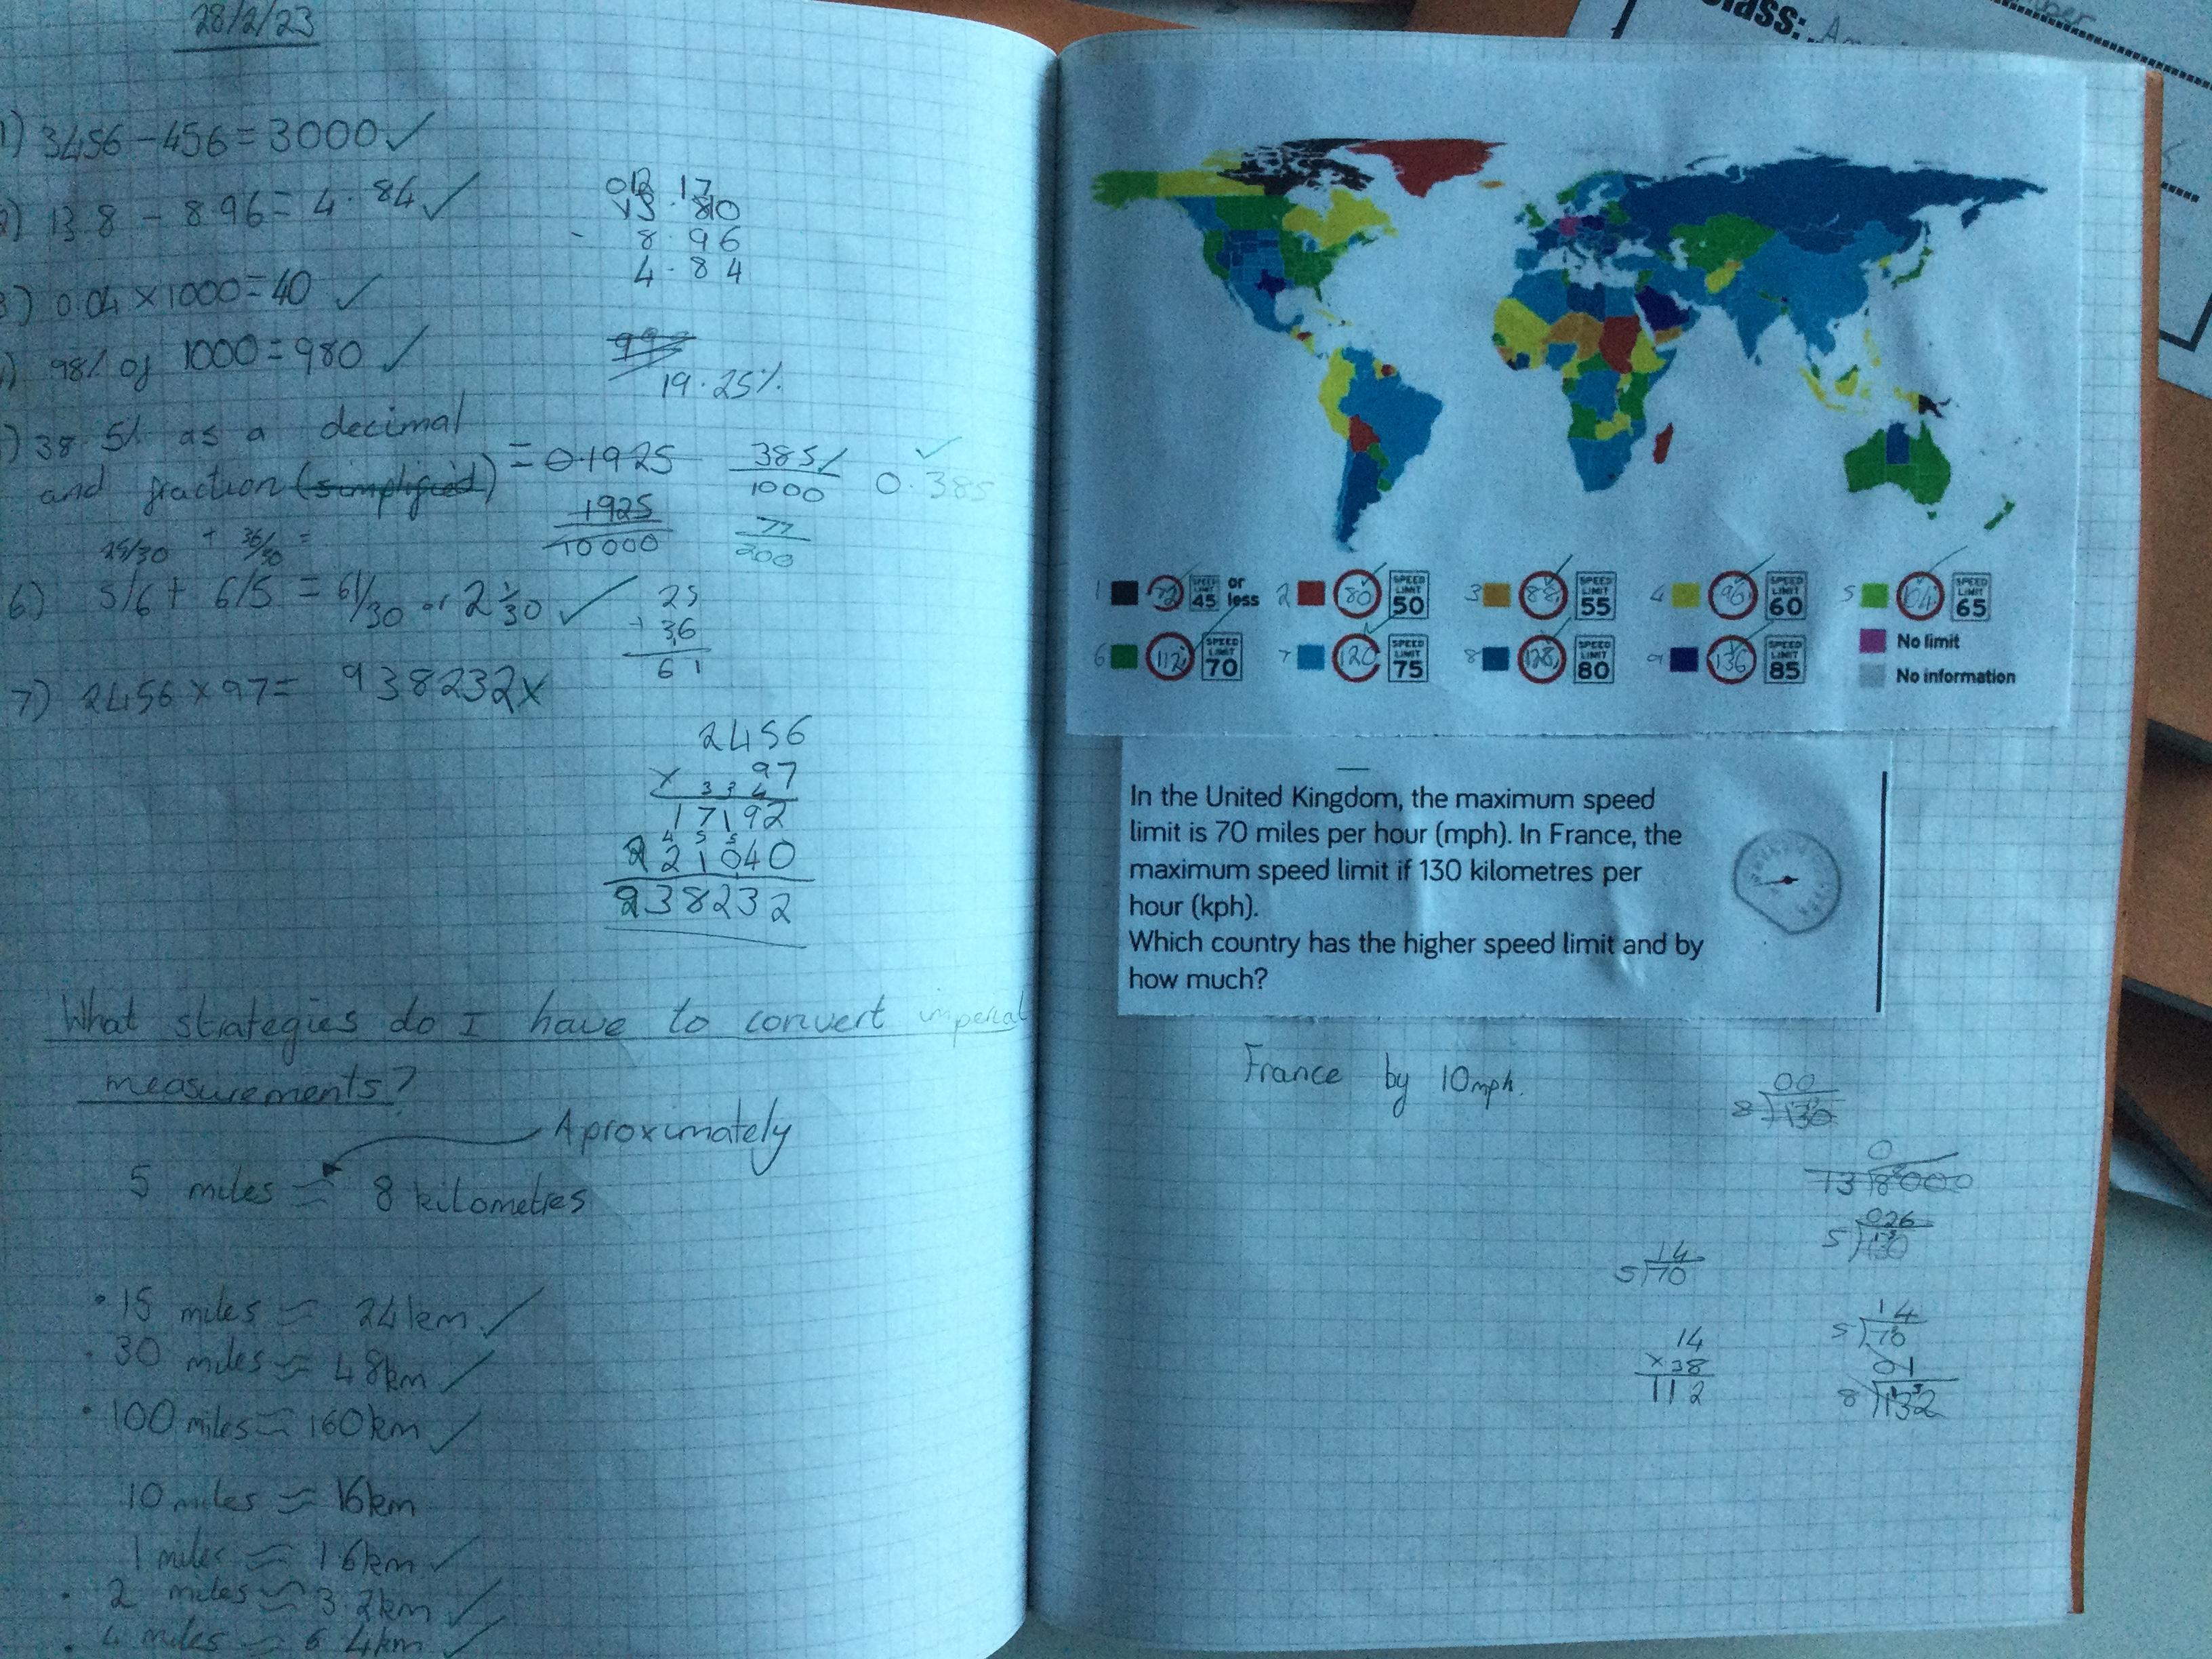 28/2/23
3456 - 456 = 3000 ✓
13.8 - 8.96 = 4.84 ✓
13.80
- 8.96
4.84
0.04 × 1000 = 40 ✓
98% of 1000 = 980 ✓
19.25%
38.5% as a decimal
and fraction (simplified) = 0.1925
1925
10000
385 ✓
1000
0.385 ✓
77
200
25/30 + 36/30 =
6) 5/6 + 6/5 = 61/30 or 2 1/30 ✓
25
+ 36
61
7) 2456 × 97 = 938232 x
2456
× 97
17192
221040
938232
What strategies do I have to convert imperial
measurements?
Aproximately
5 miles ≈ 8 kilometres
• 15 miles ≈ 24km ✓
• 30 miles ≈ 48km ✓
• 100 miles ≈ 160km ✓
10 miles ≈ 16km
1 miles ≈ 1.6km ✓
• 2 miles ≈ 3.2km ✓
• 4 miles ≈ 6.4km ✓
class:
1 72 SPEED LIMIT 45 or less 2 80 SPEED LIMIT 50 3 88 SPEED LIMIT 55 4 96 SPEED LIMIT 60 5 104 SPEED LIMIT 65
6 112 SPEED LIMIT 70 7 120 SPEED LIMIT 75 8 128 SPEED LIMIT 80 9 136 SPEED LIMIT 85
No limit
No information
In the United Kingdom, the maximum speed
limit is 70 miles per hour (mph). In France, the
maximum speed limit if 130 kilometres per
hour (kph).
Which country has the higher speed limit and by
how much?
France by 10mph.
00
8)130
0
13)8000
026
5)130
14
5)70
14
× 38
112
14
5)70
01
8)132